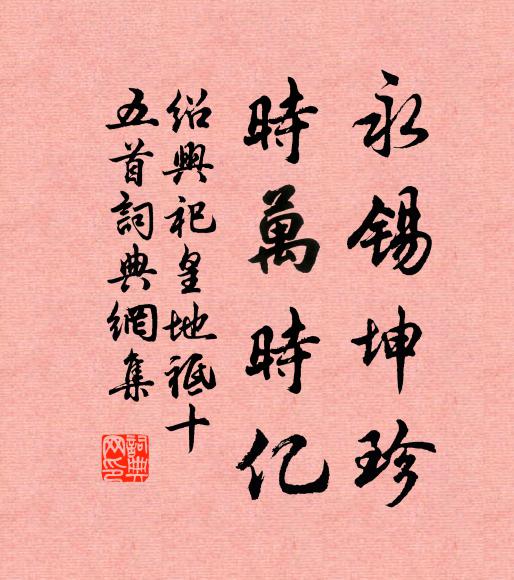 永锡坤珍
時萬時亿
绍興祀皇地祗十
五首詞典網集
詞典
网印